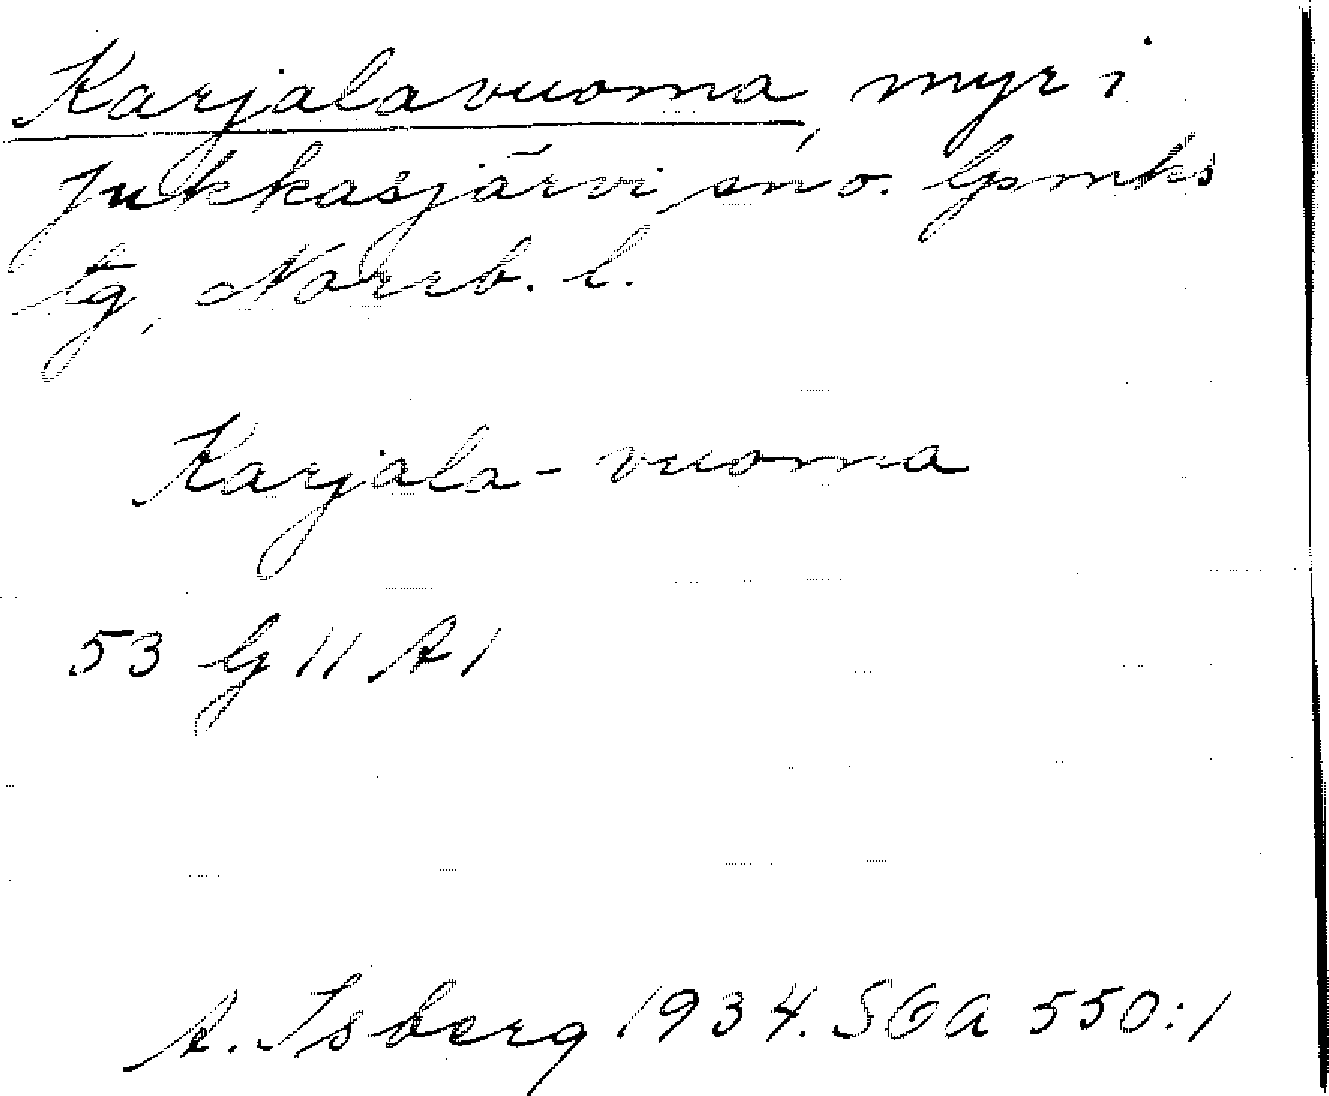 Karjalavuoma, myr i
Jukkasjärvi sn o. Gpmks
tg, Norrb. l.
Karjala-vuoma
53 G 11 A 1
A. Isberg 1934. SOA 550:1